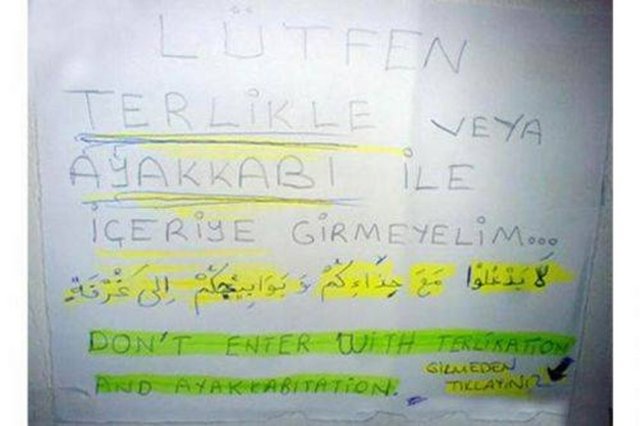 LÜTFEN
TERLİKLE VEYA
AYAKKABI İLE
İÇERİYE GİRMEYELİM...
لَا يَدْخُلُوا مَعَ حِذَاءِكُمْ وَ بَوَابِيجُكُمْ اِلىَ غُرْفَةٍ
DON'T ENTER WITH TERLIKATION
AND AYAKKABITATION.
GİRMEDEN
TIKLAYINIZ